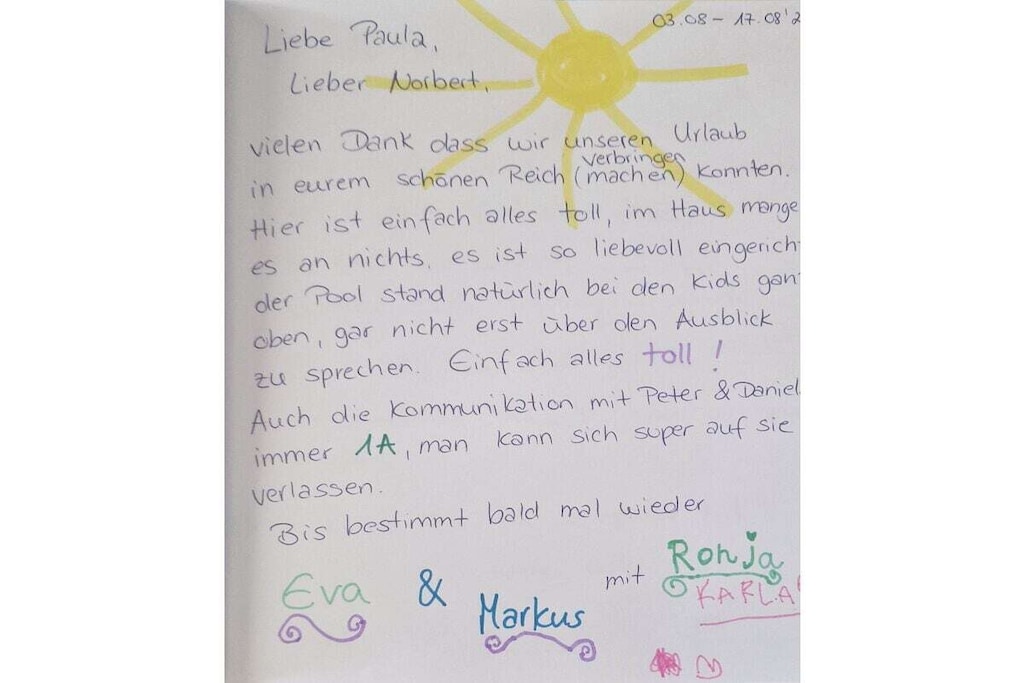 03.08 - 17.08'2
Liebe Paula,
Lieber Norbert,
vielen Dank dass wir unseren Urlaub
verbringen
in eurem schönen Reich (machen) konnten.
Hier ist einfach alles toll, im Haus mange
es an nichts, es ist so liebevoll eingerich
der Pool stand natürlich bei den Kids gan
oben, gar nicht erst über den Ausblick
zu sprechen. Einfach alles toll!
Auch die Kommunikation mit Peter & Daniel
immer 1A, man kann sich super auf sie
verlassen.
Bis bestimmt bald mal wieder
Eva & Markus mit Ronja
KARLA